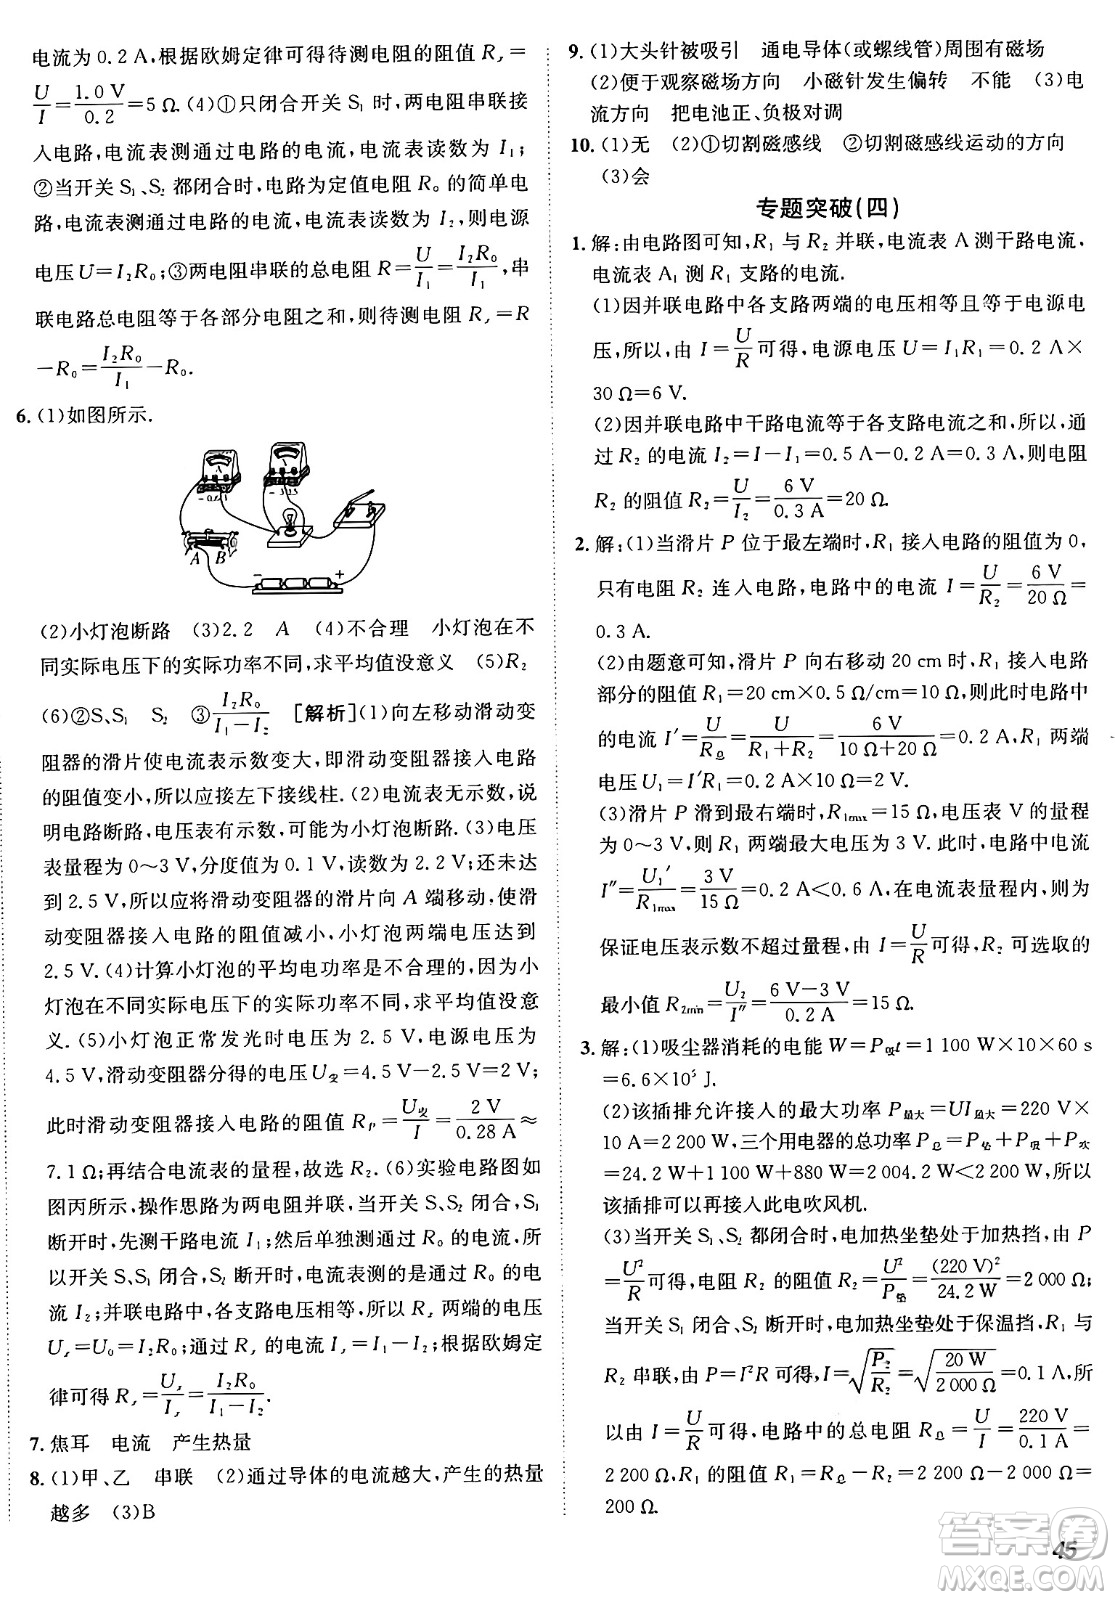 电流为0.2 A,根据欧姆定律可得待测电阻的阻值 Rₓ=
U/I=1.0 V/0.2=5 Ω.(4)①只闭合开关 S₁ 时,两电阻串联接
入电路,电流表测通过电路的电流,电流表读数为 I₁;
②当开关 S₁、S₂ 都闭合时,电路为定值电阻 R₀ 的简单电
路,电流表测通过电路的电流,电流表读数为 I₂,则电源
电压 U=I₂R₀;③两电阻串联的总电阻 R=U/I₁=I₂R₀/I₁,串
联电路总电阻等于各部分电阻之和,则待测电阻 Rₓ=R
-R₀=I₂R₀/I₁-R₀.
6.(1)如图所示.
A
-0.6 3
-3 15
A B
- +
(2)小灯泡断路 (3)2.2 A (4)不合理 小灯泡在不
同实际电压下的实际功率不同,求平均值没意义 (5)R₂
(6)②S、S₁ S₂ ③I₂R₀/(I₁-I₂) [解析](1)向左移动滑动变
阻器的滑片使电流表示数变大,即滑动变阻器接入电路
的阻值变小,所以应接左下接线柱.(2)电流表无示数,说
明电路断路,电压表有示数,可能为小灯泡断路.(3)电压
表量程为0～3 V,分度值为0.1 V,读数为2.2 V;还未达
到2.5 V,所以应将滑动变阻器的滑片向 A 端移动,使滑
动变阻器接入电路的阻值减小,小灯泡两端电压达到
2.5 V.(4)计算小灯泡的平均电功率是不合理的,因为小
灯泡在不同实际电压下的实际功率不同,求平均值没意
义.(5)小灯泡正常发光时电压为2.5 V,电源电压为
4.5 V,滑动变阻器分得的电压U变=4.5 V-2.5 V=2 V;
此时滑动变阻器接入电路的阻值 Rₚ=U变/I=2 V/0.28 A≈
7.1 Ω;再结合电流表的量程,故选 R₂.(6)实验电路图如
图丙所示,操作思路为两电阻并联,当开关 S、S₂ 闭合,S₁
断开时,先测干路电流 I₁;然后单独测通过 R₀ 的电流,所
以开关 S、S₁ 闭合,S₂ 断开时,电流表测的是通过 R₀ 的电
流 I₂;并联电路中,各支路电压相等,所以 Rₓ 两端的电压
Uₓ=U₀=I₂R₀;通过 Rₓ 的电流 Iₓ=I₁-I₂;根据欧姆定
律可得 Rₓ=Uₓ/Iₓ=I₂R₀/(I₁-I₂).
7.焦耳 电流 产生热量
8.(1)甲、乙 串联 (2)通过导体的电流越大,产生的热量
越多 (3)B
9.(1)大头针被吸引 通电导体(或螺线管)周围有磁场
(2)便于观察磁场方向 小磁针发生偏转 不能 (3)电
流方向 把电池正、负极对调
10.(1)无 (2)①切割磁感线 ②切割磁感线运动的方向
(3)会
专题突破(四)
1.解:由电路图可知,R₁ 与 R₂ 并联,电流表 A 测干路电流,
电流表 A₁ 测 R₁ 支路的电流.
(1)因并联电路中各支路两端的电压相等且等于电源电
压,所以,由 I=U/R可得,电源电压 U=I₁R₁=0.2 A×
30 Ω=6 V.
(2)因并联电路中干路电流等于各支路电流之和,所以,通
过 R₂ 的电流 I₂=I-I₁=0.5 A-0.2 A=0.3 A,则电阻
R₂ 的阻值 R₂=U/I₂=6 V/0.3 A=20 Ω.
2.解:(1)当滑片 P 位于最左端时,R₁ 接入电路的阻值为0,
只有电阻 R₂ 连入电路,电路中的电流 I=U/R₂=6 V/20 Ω=
0.3 A.
(2)由题意可知,滑片 P 向右移动20 cm时,R₁ 接入电路
部分的阻值 R₁=20 cm×0.5 Ω/cm=10 Ω,则此时电路中
的电流 I′=U/R总=U/(R₁+R₂)=6 V/(10 Ω+20 Ω)=0.2 A,R₁ 两端
电压 U₁=I′R₁=0.2 A×10 Ω=2 V.
(3)滑片 P 滑到最右端时,R₁max=15 Ω,电压表 V 的量程
为0～3 V,则 R₁ 两端最大电压为3 V.此时,电路中电流
I″=U₁′/R₁max=3 V/15 Ω=0.2 A<0.6 A,在电流表量程内,则为
保证电压表示数不超过量程,由 I=U/R可得,R₂ 可选取的
最小值 R₂min=U₂/I″=(6 V-3 V)/0.2 A=15 Ω.
3.解:(1)吸尘器消耗的电能 W=P吸t=1 100 W×10×60 s
=6.6×10⁵ J.
(2)该插排允许接入的最大功率 P最大=UI最大=220 V×
10 A=2 200 W,三个用电器的总功率 P总=P垫+P吸+P水
=24.2 W+1 100 W+880 W=2 004.2 W<2 200 W,所以
该插排可以再接入此电吹风机.
(3)当开关 S₁、S₂ 都闭合时,电加热坐垫处于加热挡,由 P
=U²/R可得,电阻 R₂ 的阻值 R₂=U²/P垫=(220 V)²/24.2 W=2 000 Ω;
当开关 S₁ 闭合、S₂ 断开时,电加热坐垫处于保温挡,R₁ 与
R₂ 串联,由 P=I²R可得,I=√(P₂/R₂)=√(20 W/2 000 Ω)=0.1 A,所
以由 I=U/R可得,电路中的总电阻 R总=U/I=220 V/0.1 A=
2 200 Ω,则电阻 R₁ 的阻值 R₁=R总-R₂=2 200 Ω-2 000 Ω=
200 Ω.
45
答案圈
MXQE.COM